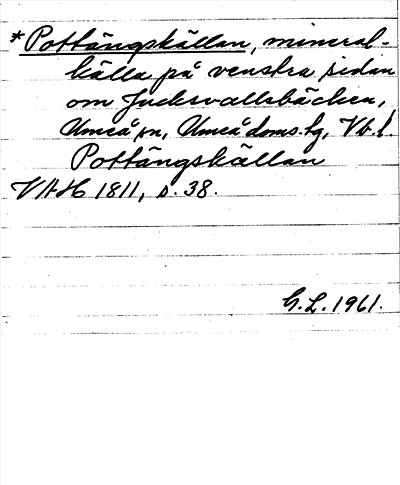 *Pottängskällan, mineral-
källa på venstra sidan
om Jucksvallsbäcken,
Umeå sn, Umeå doms.tg, Vb.l.
Pottängskällan
VAH 1811, s. 38.
G.L. 1961.